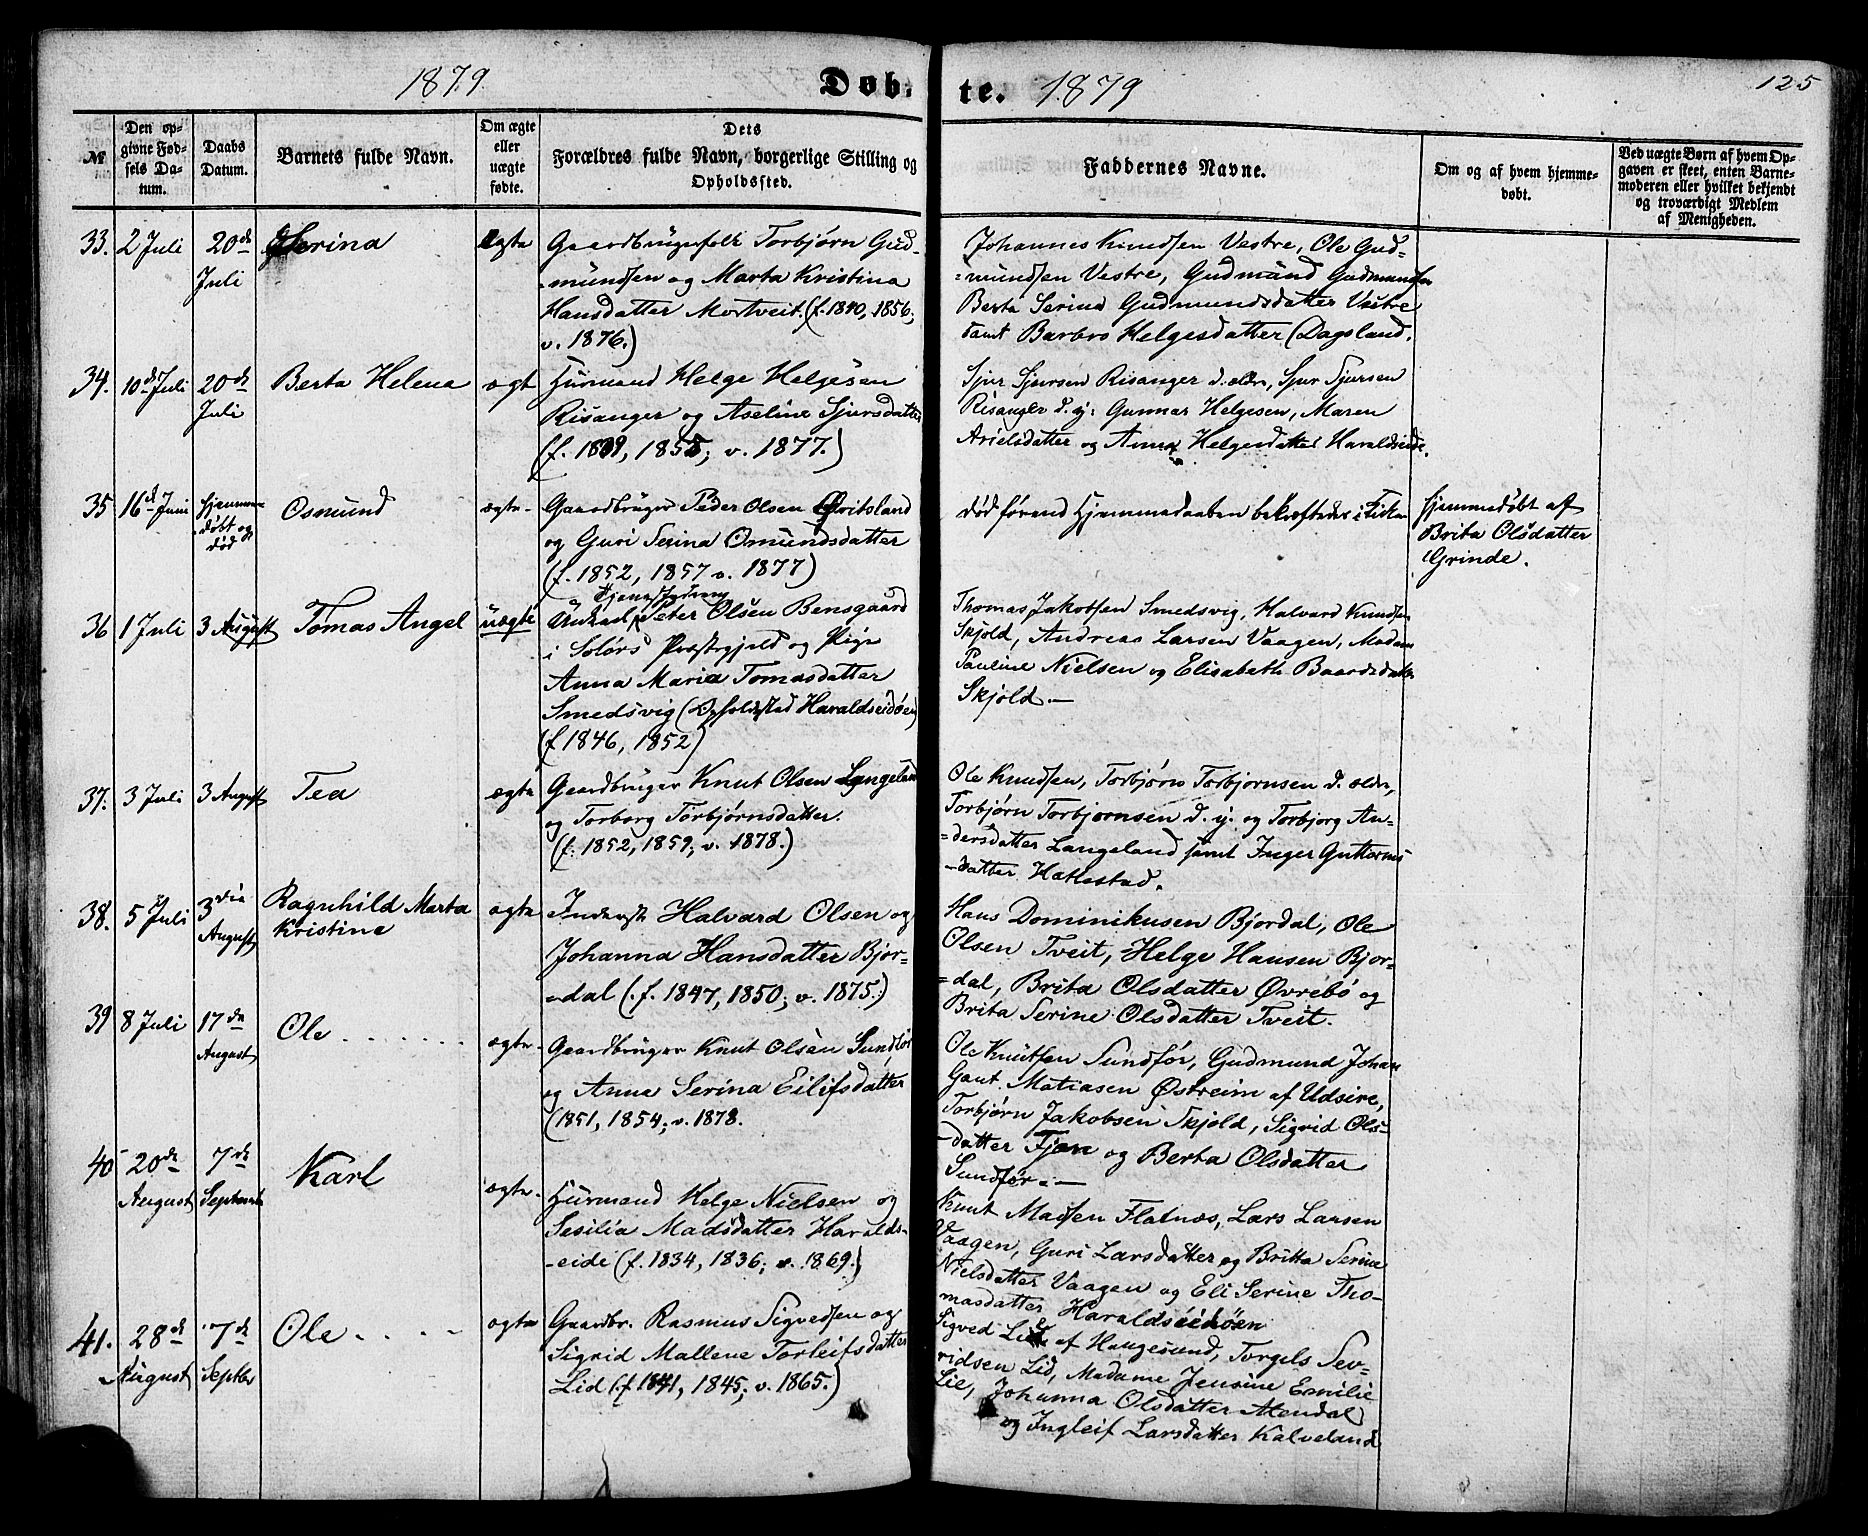 1879
Døb-
te. 1879
125
№
Den op-
givne Fød-
sels Da-
tum.
Daabs
Datum.
Barnets fulde Navn.
Om ægte
eller
uægte
fødte.
Dets
Forældres fulde Navn, borgerlige Stilling og
Opholdssted.
Faddernes Navne.
Om og af hvem hjemme-
døbt.
Ved uægte Børn af hvem Op-
gaven er skeet, enten Barne-
moderen eller hvilket bekjendt
og troværdigt Medlem
af Menigheden.
33. 2 Juli
20de
Juli
Serina
ægte
Gaardbrugerfolk Torbjørn Gud-
-mundsen og Marta Kristina
Hansdatter Mortveit. (f. 1840, 1856;
v. 1876.)
Johannes Knudsen Vestre, Ole Gud-
-mundsen Vestre, Gudmund Gudmundsen
Berta Serina Gudmundsdatter Vestre
samt Barbro Helgesdatter (Dagsland.
34. 10de Juli
20de
Juli
Berta Helena
ægt
Husmand Helge Helgesen
Risanger og Aseline Sjursdatter
(f. 1839, 1855; v. 1877.)
Sjur Sjursen Risanger d. ældr, Sjur Sjursen
Risanger d. y: Gunnar Helgesen, Maren
Arielsdatter og Anna Helgesdatter Haraldseide.
35 16de Juni
Hjemme-
døbt og
død
Osmund
ægte
Gaardbruger Peder Olsen Øvitsland
og Guri Serina Osmundsdatter
(f. 1852, 1857 v. 1877)
død førend Hjemmedaaben bekræftedes i Kirken
Hjemmedøbt af
Brita Olsdatter
Grinde.
36 1 Juli
3 August
Tomas Angel
uægte
Ungkarl Peter Olsen Bensgaard
i Solørs Præstegjeld og Pige
Anna Maria Tomasdatter
Smedsvig (Opholdsted Haraldseidøen)
(f 1846, 1852)
Thomas Jakobsen Smedsvig, Halvard Knudsen
Skjold, Andreas Larsen Vaagen, Madam
Pauline Nielsen og Elisabeth Baardsdatter
Skjold.—
37. 3 Juli
3 August
Tea
ægte
Gaardbruger Knut Olsen Langeland
og Torborg Torbjørnsdatter.
(f. 1852, 1859; v. 1878.)
Ole Knudsen, Torbjørn Torbjørnsen d. ældr,
Torbjørn Torbjørnsen d. y. og Torbjorg An-
-dersdatter Langeland samt Inger Guttorms
-datter Hatlestad.
38. 5 Juli
3die
August
Ragnhild Marta
Kristine
ægte
Inderst Halvard Olsen og
Johanna Hansdatter Bjor-
-dal (f. 1847, 1850; v. 1875.)
Hans Dominikusen Bjordal, Ole
Olsen Tveit, Helge Hansen Bjor-
-dal, Brita Olsdatter Øvrebø og
Brita Serine Olsdatter Tveit.
39 8 Juli
17de
August
Ole
ægte
Gaardbruger Knut Olsen Sundfør
og Anne Serina Eilifsdatter
(1851, 1854; v. 1878.
Ole Knutsen Sundfør, Gudmund Johan
Gaut Matiasen Østreim af Udsire,
Torbjørn Jakobsen Skjold, Sigrid Ols-
-datter Fjøn og Berta Olsdatter
Sundfør.—
40 20de
August
7de
September
Karl
ægte
Husmand Helge Nielsen og
Sesilia Madsdatter Haralds-
-eide (f. 1834, 1836; v. 1869.)
Knut Madsen Flatnæs, Lars Larsen
Vaagen, Guri Larsdatter og Britta Serina
Nielsdatter Vaagen og Eli Serine Tho-
masdatter Haraldseidøen
41. 28de
August
7de
Septbr
Ole
ægte
Gaardbr. Rasmus Sigvedsen og
Sigrid Mallene Torleifsdatter
Lid (f. 1841, 1845; v. 1865.)
Sigved Lie af Haugesund, Torgels Sev-
ridsen Lid, Madame Jensine Emilie
Lie, Johanna Olsdatter Alendal
og Ingleif Larsdatter Kalveland